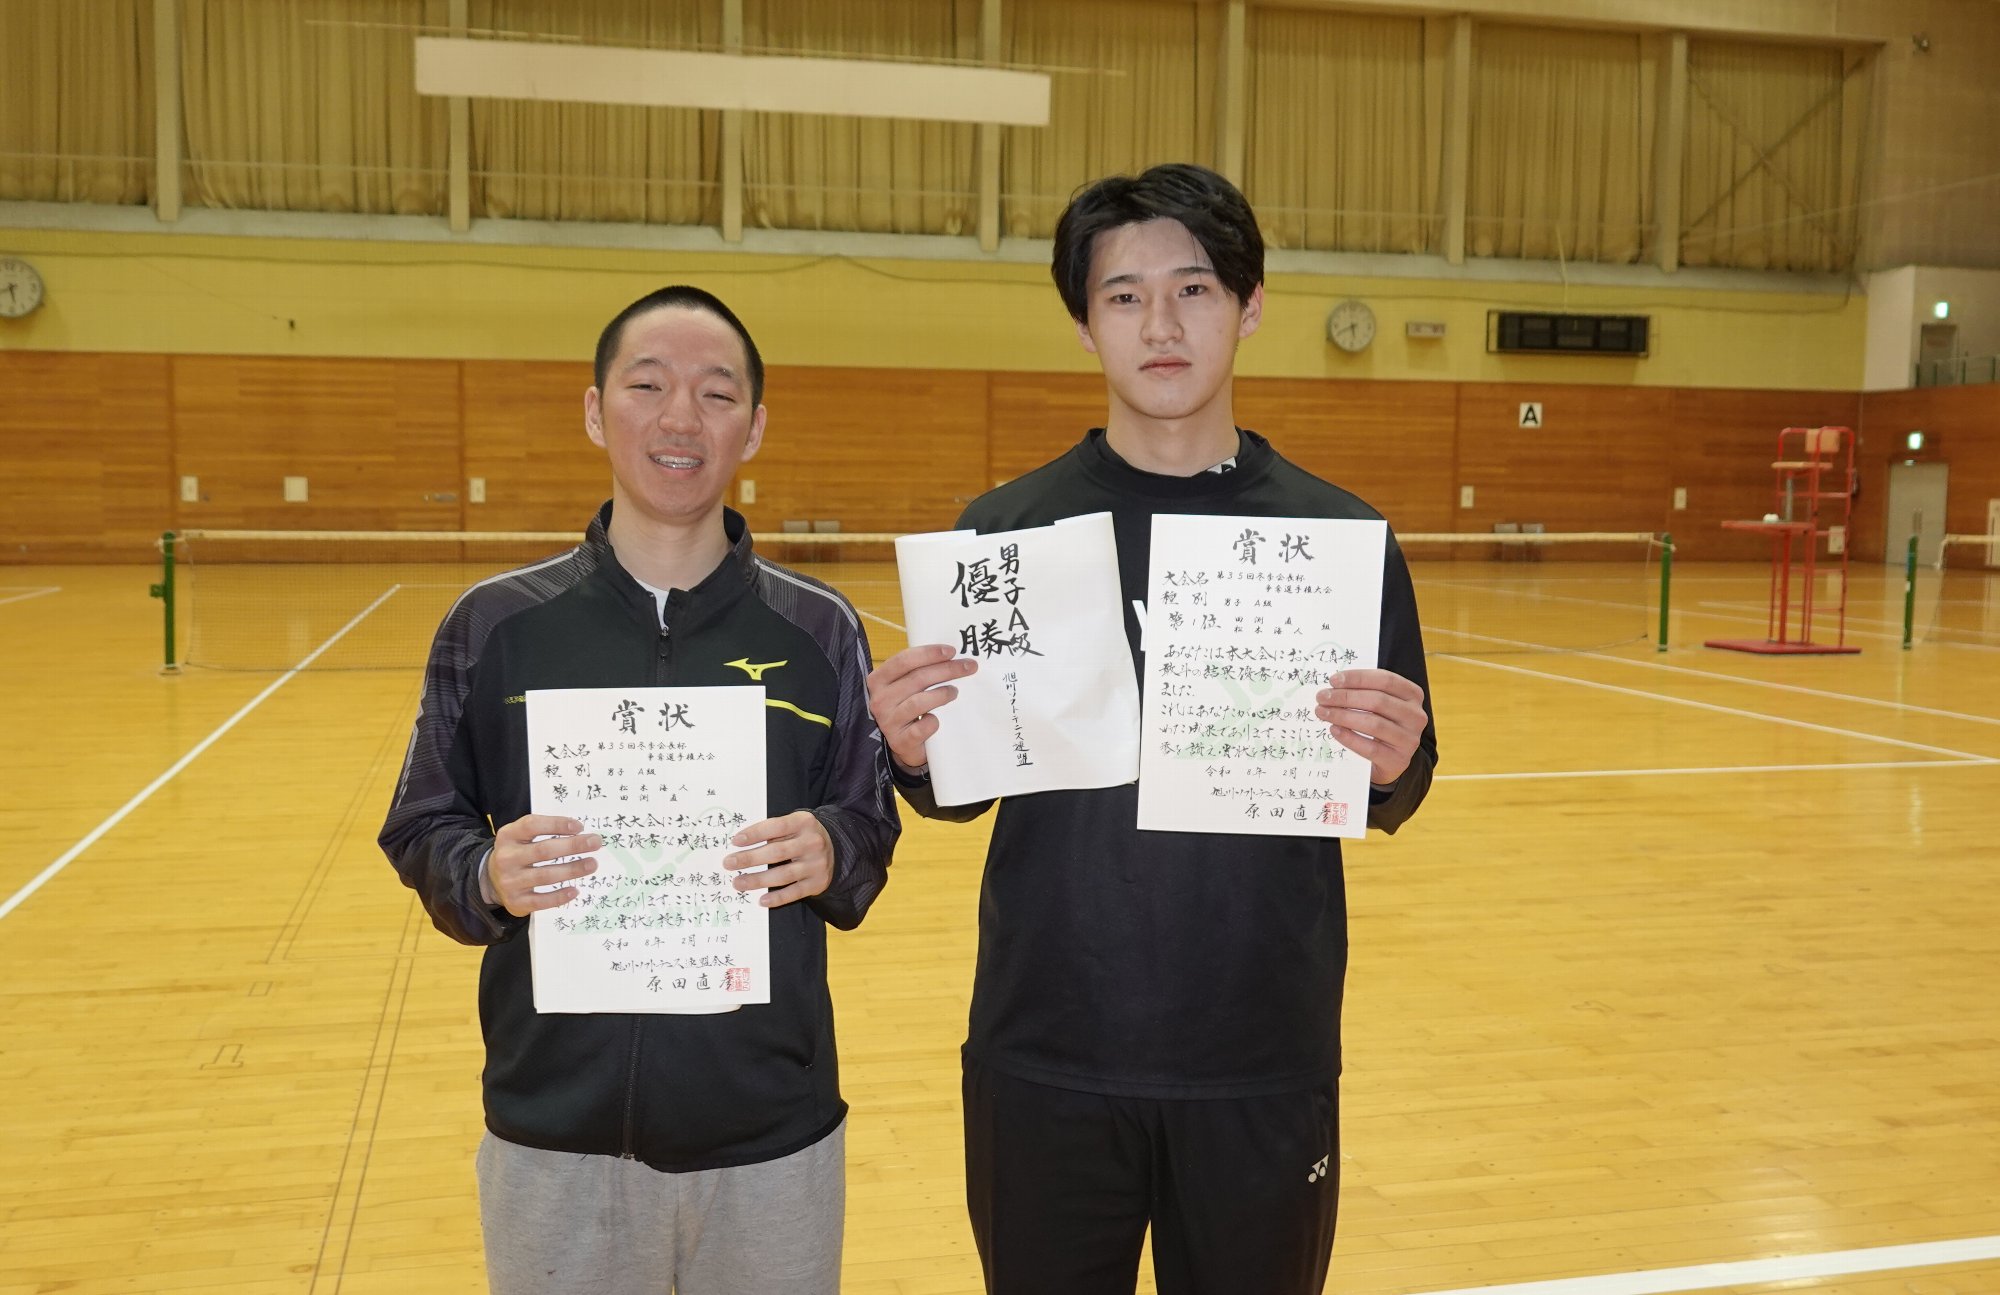 賞状
大会名 第35回冬季会長杯
争奪選手権大会
種別 男子 A級
第1位 松本海人 組
田渕直
あなたは本大会において真勢
結果優秀な成績を収
これはあなたが心技の錬磨に
た成果であります。ここにその栄
誉を讃え賞状を授与いたします
令和8年2月11日
旭川ソフトテニス連盟会長
原田直彦
男子A級
優勝
旭川ソフトテニス連盟
賞状
大会名 第35回冬季会長杯
争奪選手権大会
種別 男子 A級
第1位 田渕直
松本海人 組
あなたは本大会において真勢
敢斗の結果優秀な成績を
ました
これはあなたが心技の錬
めた成果であります。ここにその
誉を讃え賞状を授与いたします
令和8年2月11日
旭川ソフトテニス連盟会長
原田直彦
A